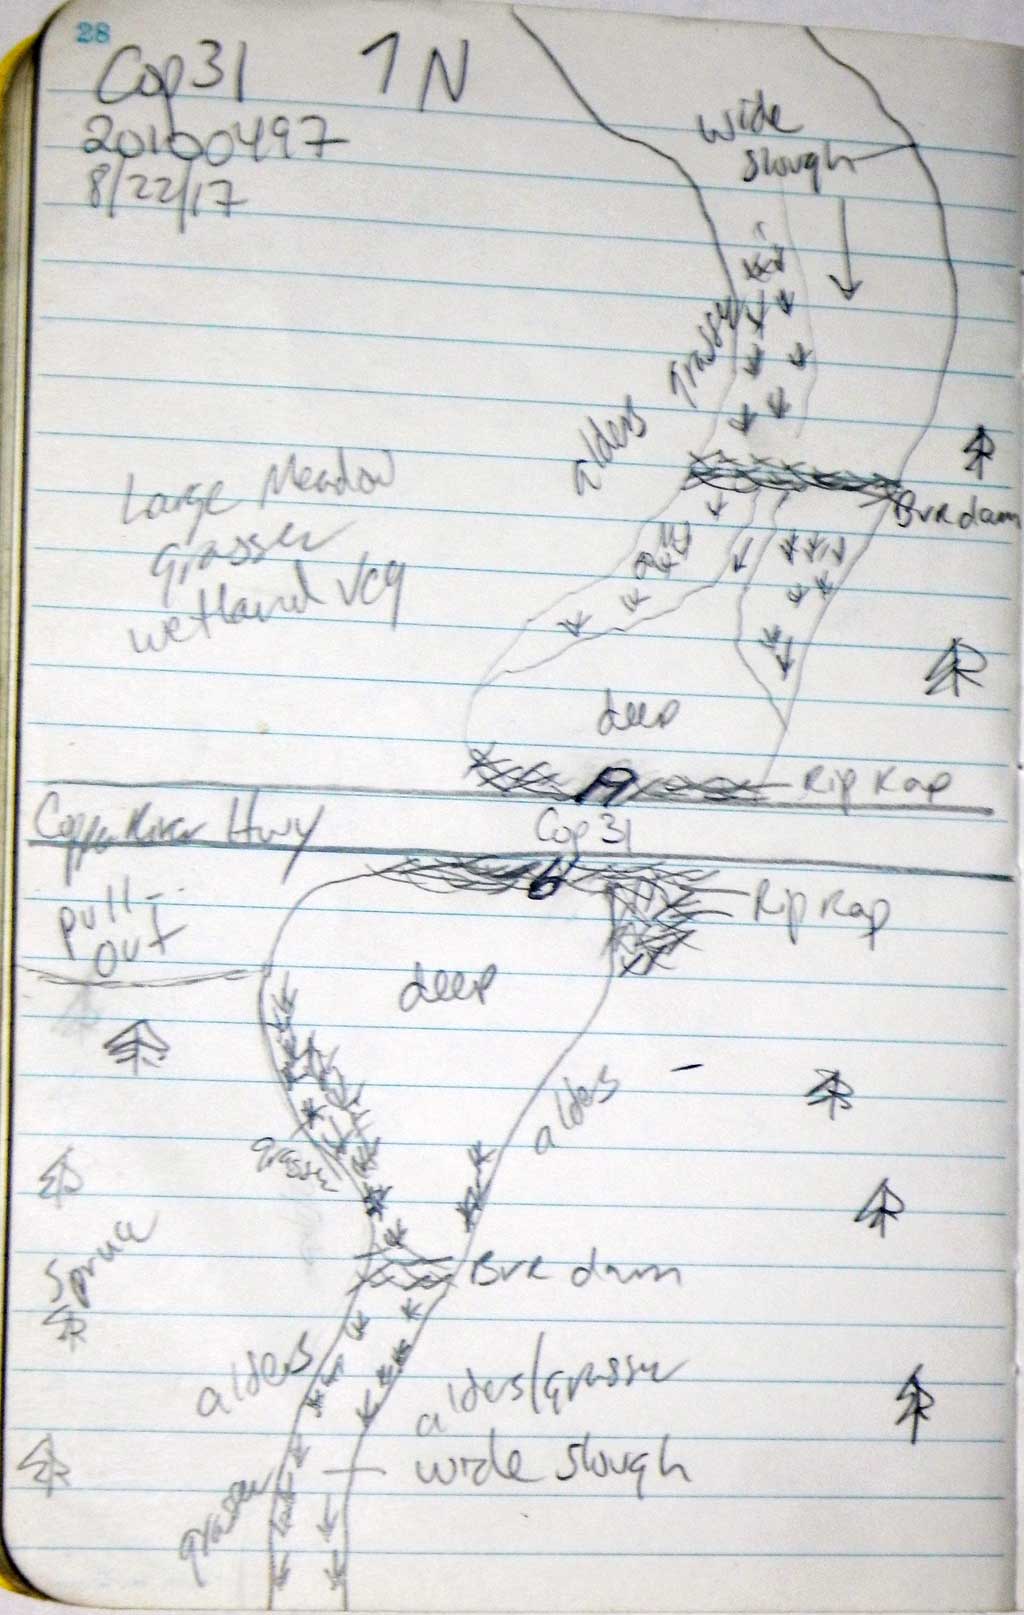 28
Cop31 1 N
20100497
8/22/17
wide
slough
grasses
alders
Bvr dam
Large Meadow
grasses
wetland veg
deep
Rip Rap
Copper River Hwy
Cop 31
Rip Rap
pull-
out
deep
alders
grasses
Spruce
Bvr dam
alders
alders/grasses
wide slough
grasses